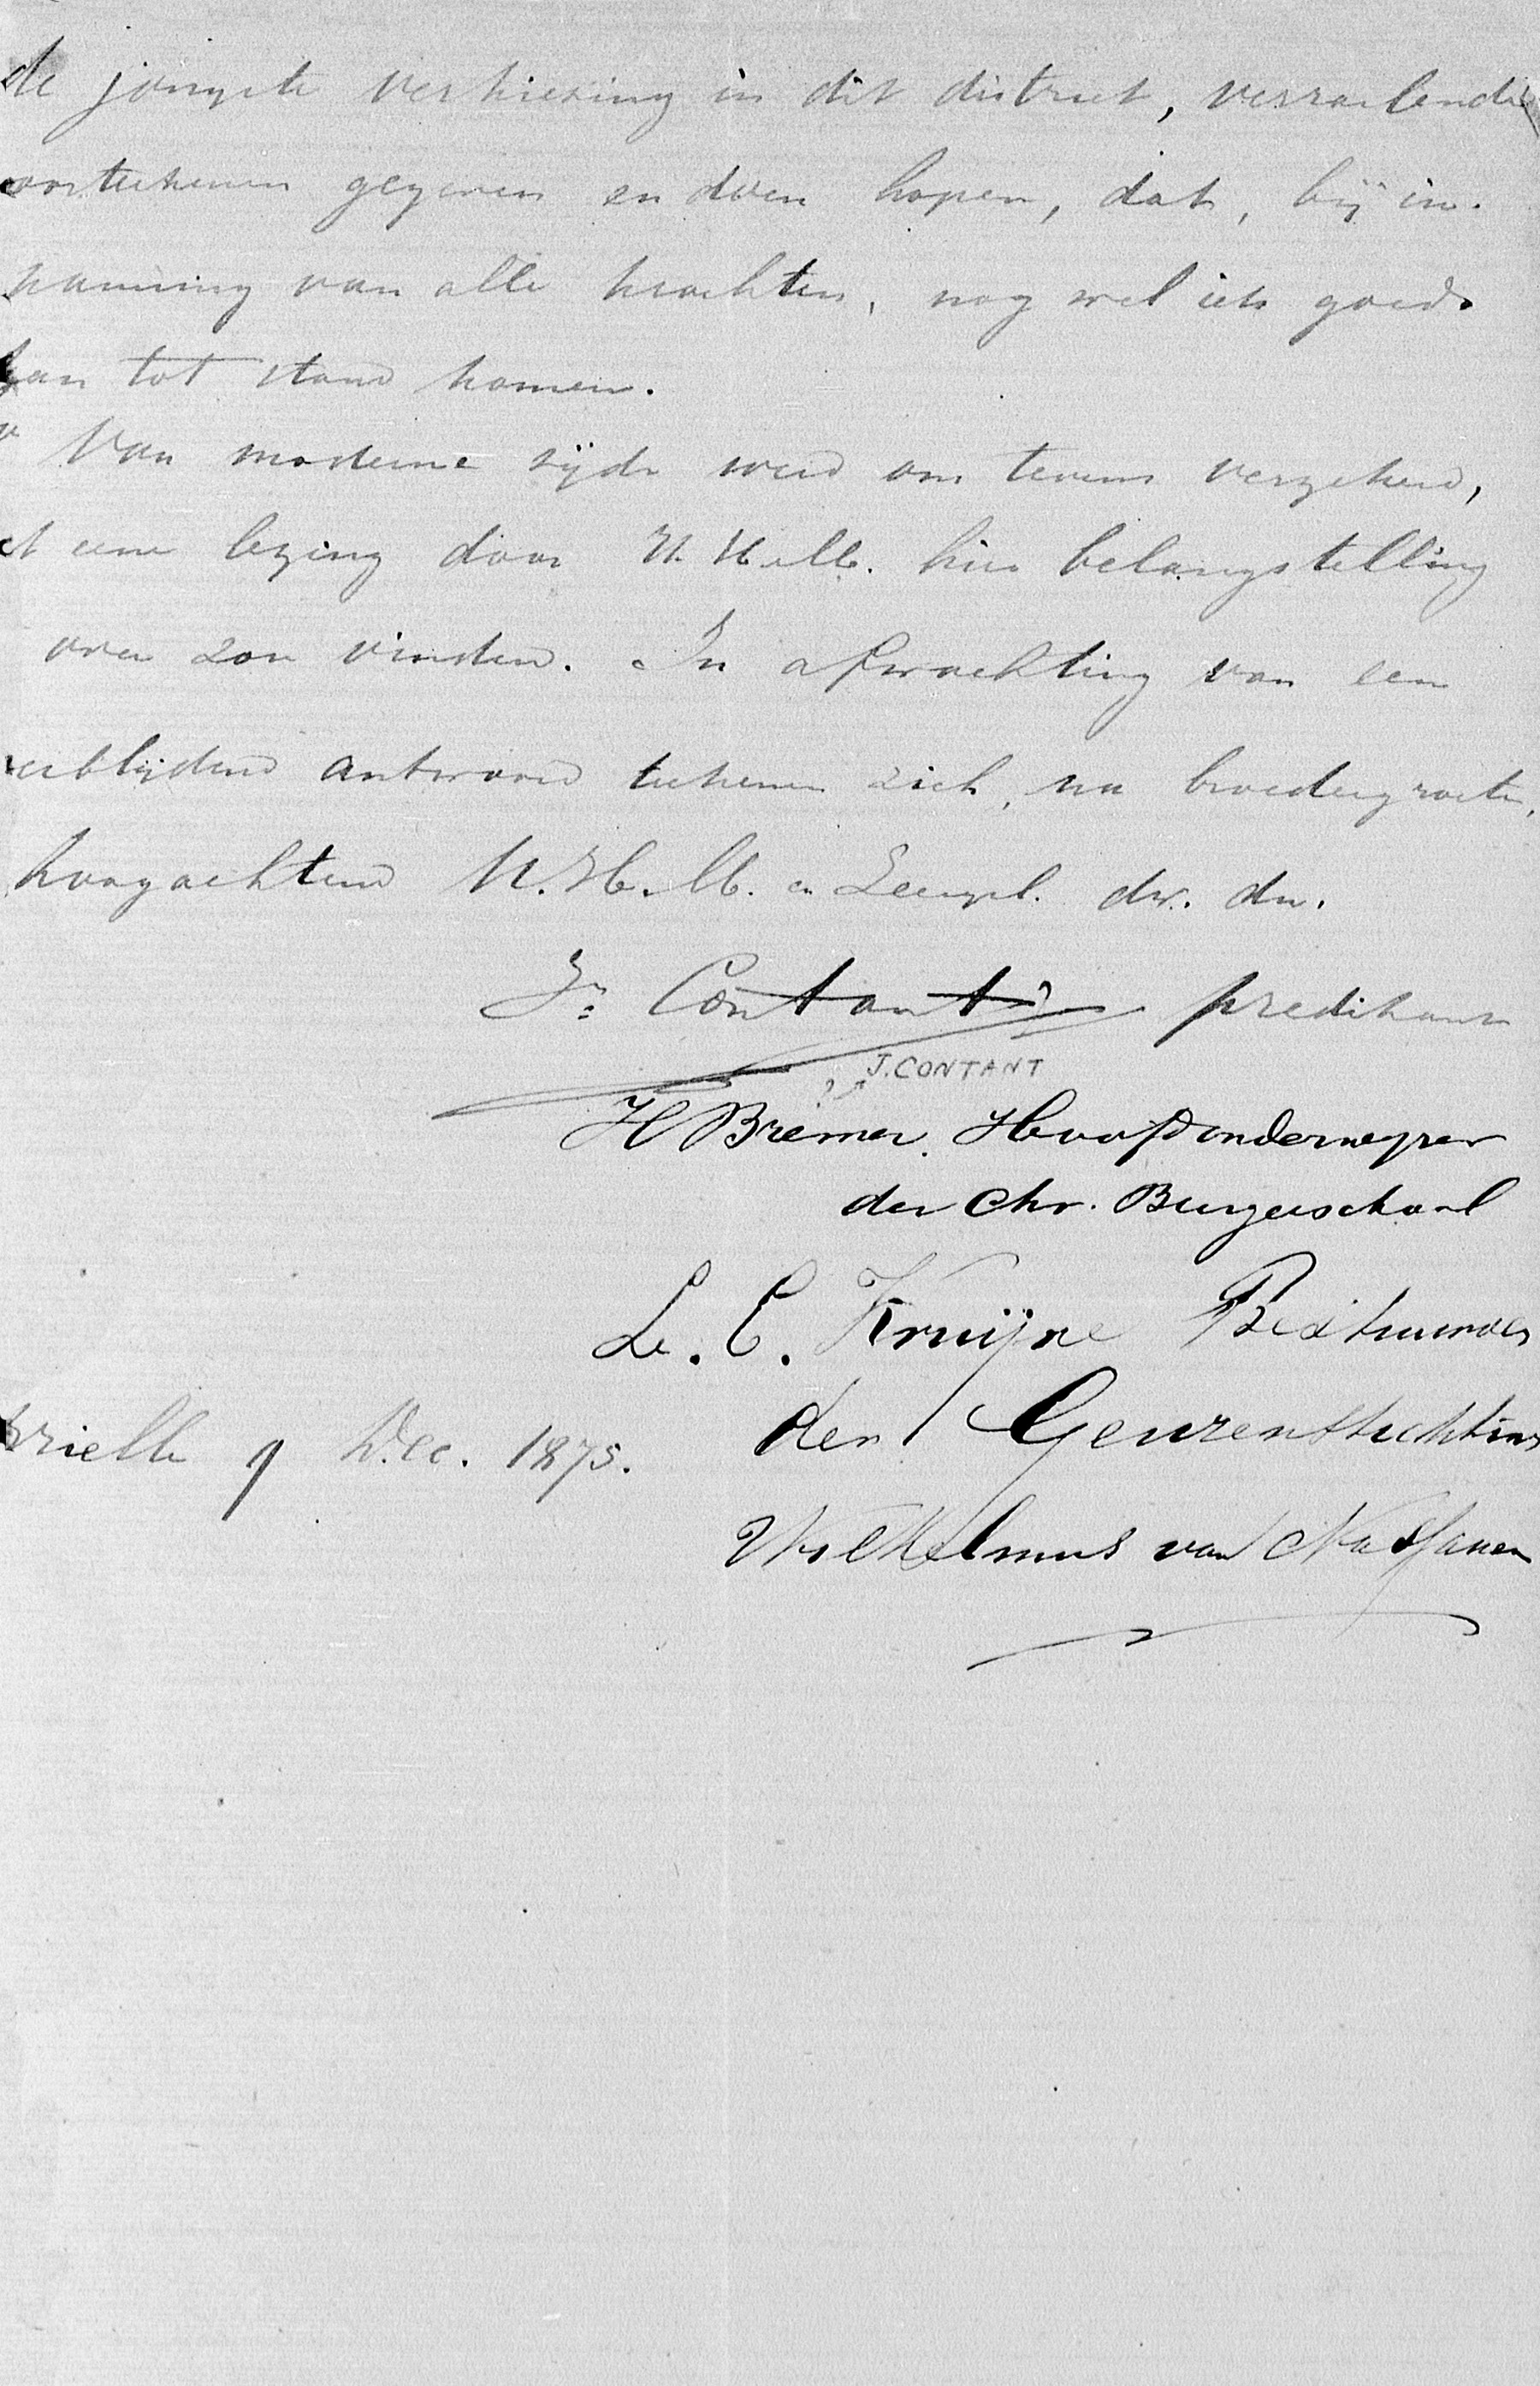 de jongste verkiezing in dit district, verrassende
voorteekenen gegeven en doen hopen, dat, bij in-
spanning van alle krachten, nog wel iets goeds
kan tot stand komen.
Van moderne zijde werd ons tevens verzekerd,
dat eene lezing door U.H.M. hier belangstelling
over zou vinden. In afwachting van een
verblijdend antwoord teekenen zich, na broedergroete,
hoogachtend U.H.M. en Zeergel. dw. dn.
Js Contant predikant
J. CONTANT
H Bremer. Hoofdonderwijzer
der Chr. Burgerschool
L. C. Kruijne Bestuurder
der Geuzenstichting
Brielle 9 Dec. 1875.
Wilhelmus van Nassauen